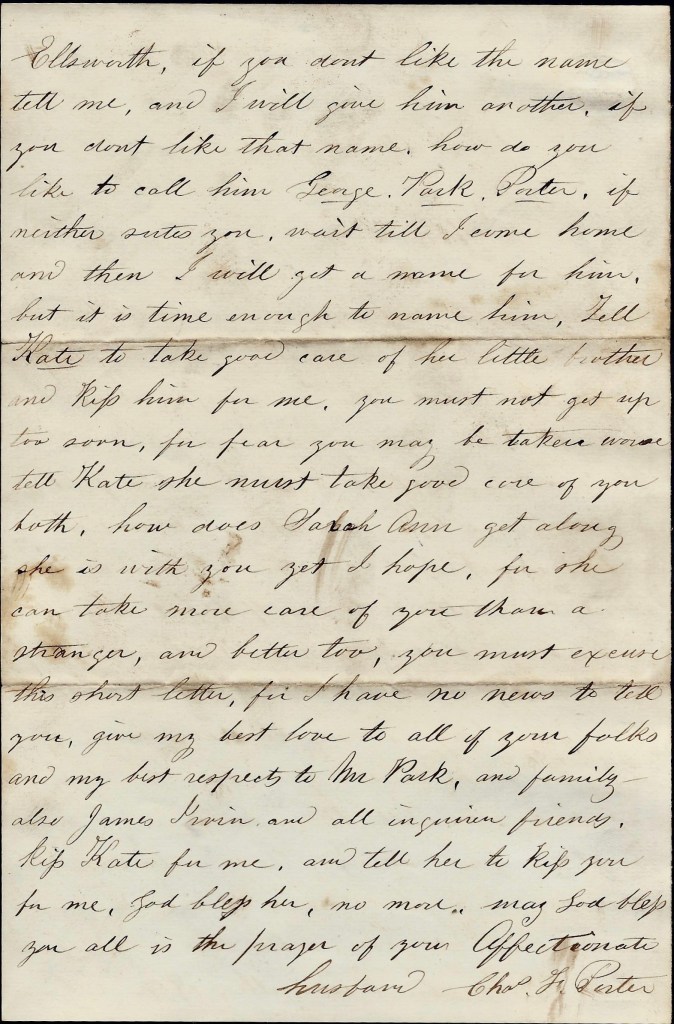 Ellsworth, if you dont like the name
tell me, and I will give him another, if
you dont like that name. how do you
like to call him George. Park. Porter, if
neither sutes you, wait till I come home
and then I will get a name for him,
but it is time enough to name him, Tell
Kate to take good care of her little brother
and Kiss him for me, you must not get up
too soon, for fear you may be taken worse
tell Kate she must take good care of you
both, how does Sarah Ann get along
she is with you yet I hope, for she
can take more care of you than a
stranger, and better too, you must excuse
this short letter, for I have no news to tell
you, give my best love to all of your folks
and my best respects to Mr Park, and family
also James Irvin and all inquiren friends.
Kiss Kate for me, and tell her to Kiss you
for me, God bless her, no more.. may God bless
you all is the prayer of your Affectionate
husband Chas. F. Porter